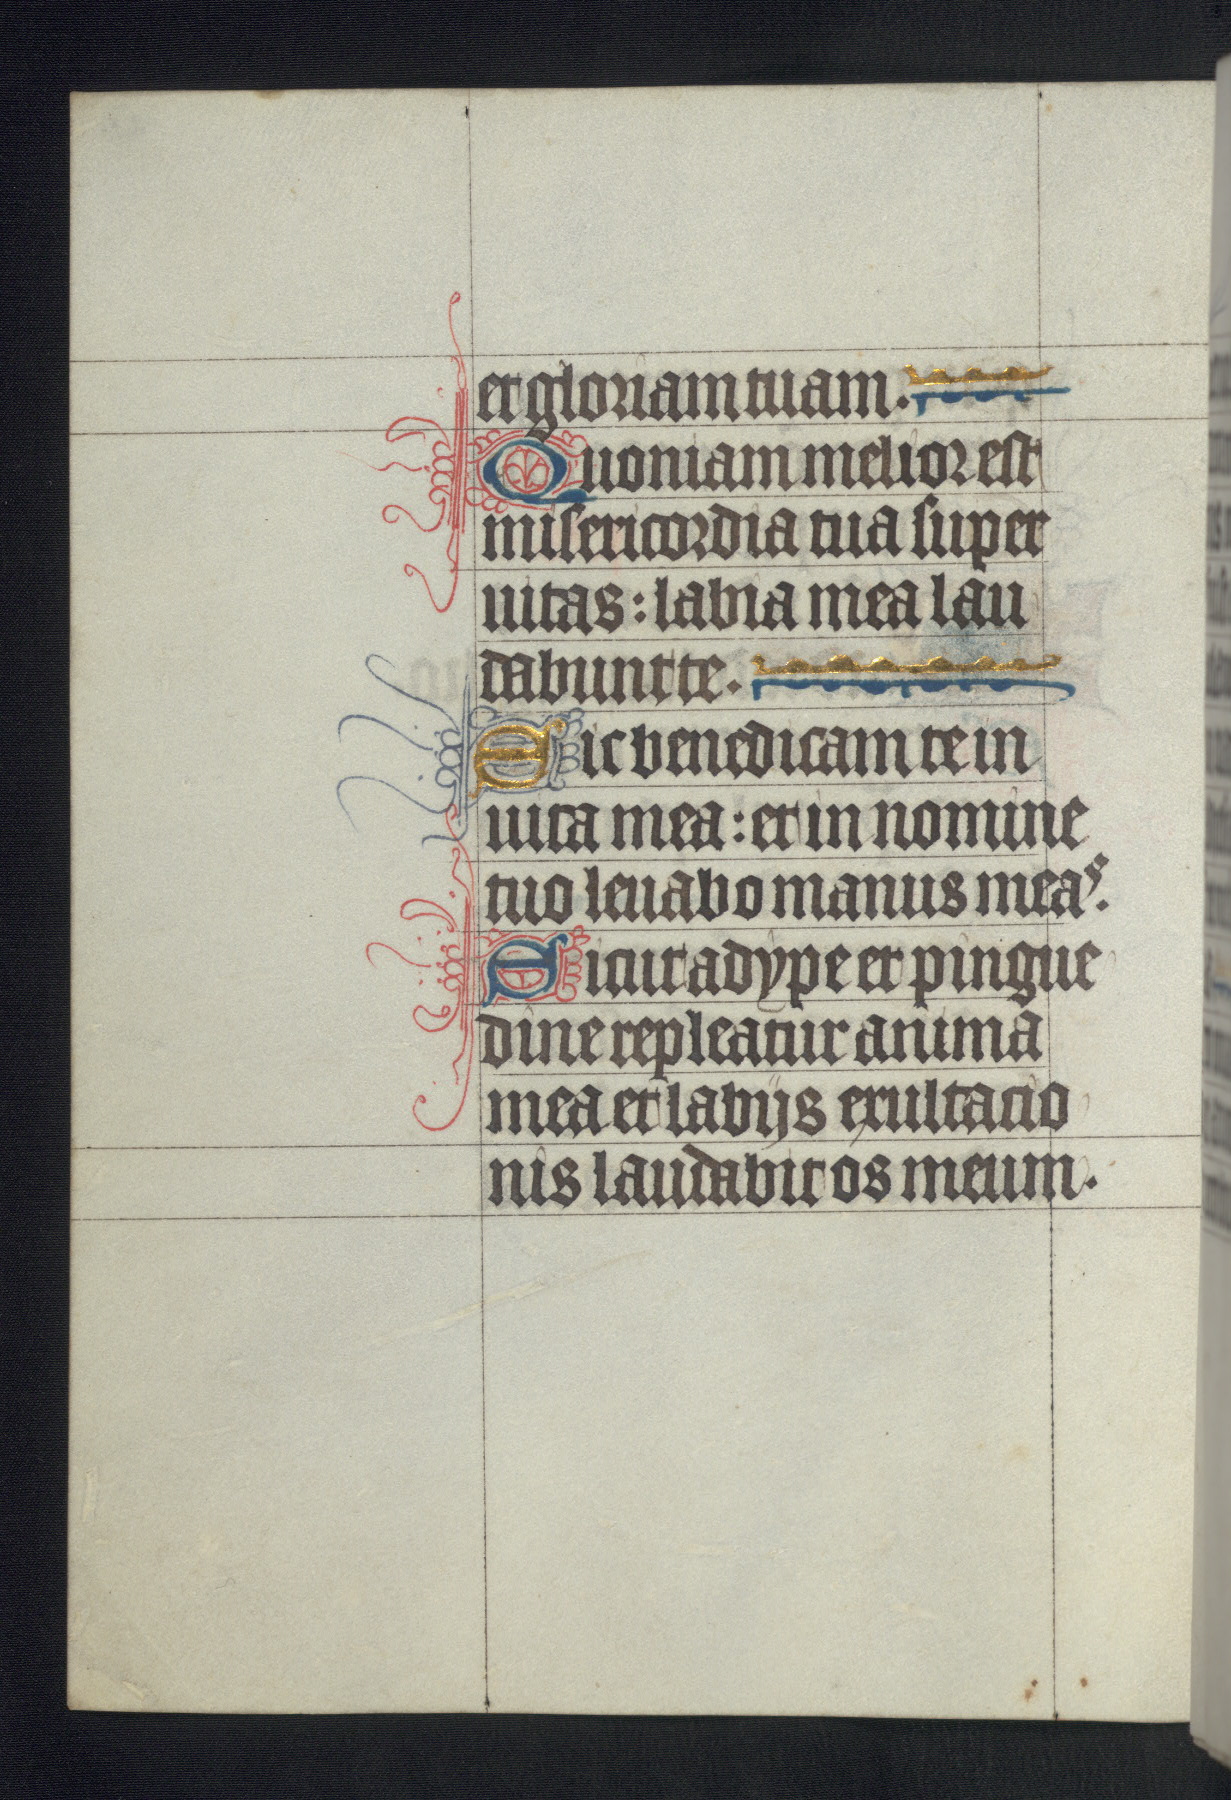 et gloriam tuam.
Quoniam melior est
misericordia tua super
uitas: labia mea lau
dabunt te.
Sic benedicam te in
uita mea: et in nomine
tuo leuabo manus meas.
Sicut adype et pingue
dine repleatur anima
mea et labijs exultacio
nis laudabit os meum.